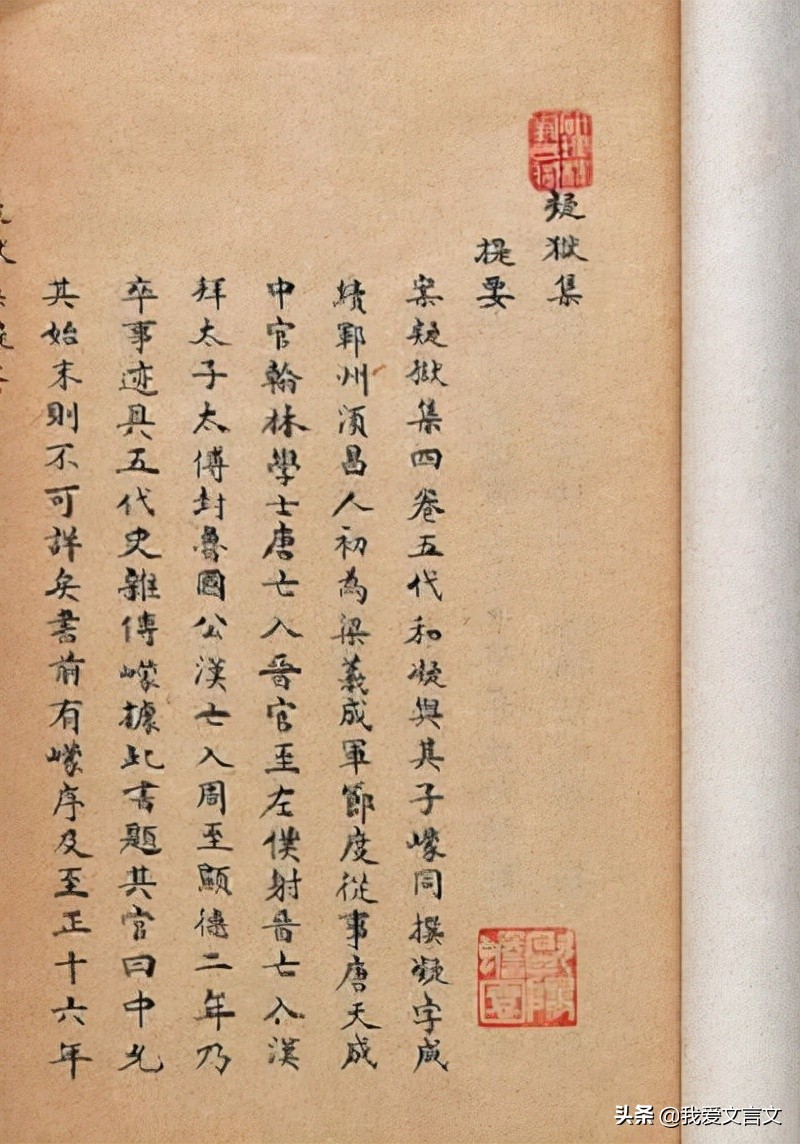 疑獄集
提要
案疑獄集四卷五代和凝與其子㠓同撰凝字成
績鄆州湏昌人初為梁義成軍節度從事唐天成
中官翰林學士唐亡入晉官至左僕射晉亡入漢
拜太子太傅封魯國公漢亡入周至顯德二年乃
卒事迹具五代史雜傳㠓據此書題其官曰中允
其始末則不可詳矣書前有㠓序及至正十六年
头条 @我爱文言文